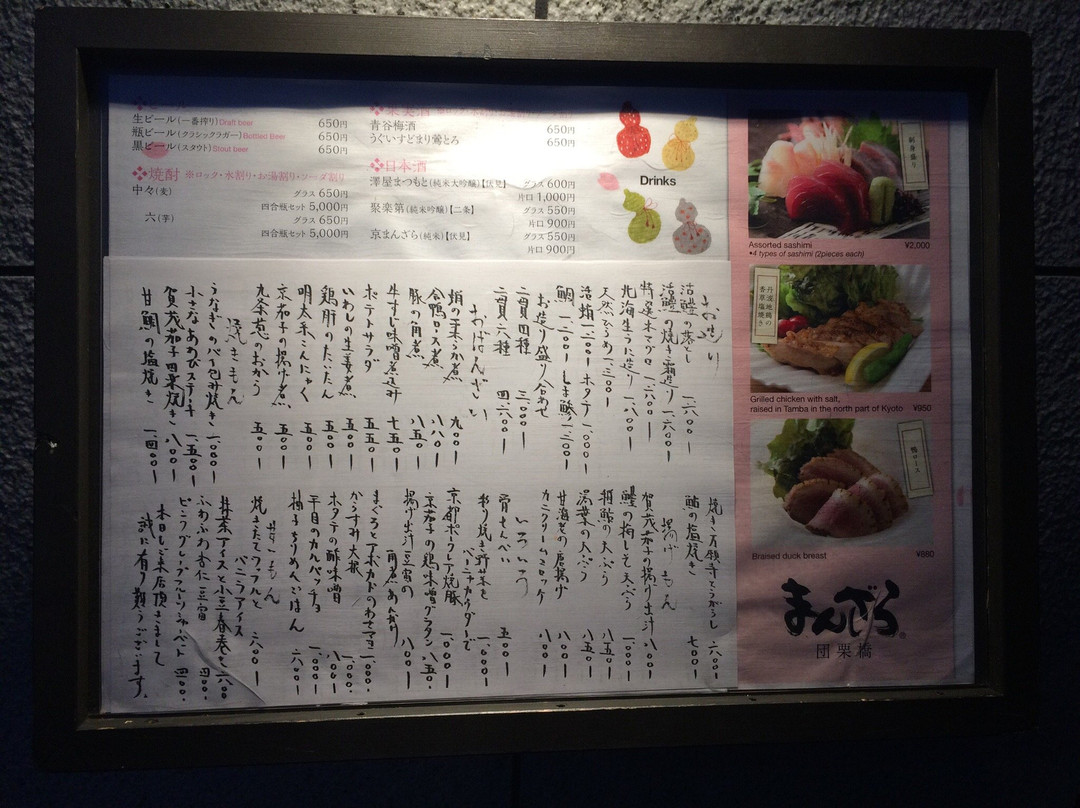 生ビール(一番搾り)Draft beer 650円
瓶ビール(クラシックラガー)Bottled Beer 650円
黒ビール(スタウト)Stout beer 650円
❖焼酎 ※ロック・水割り・お湯割り・ソーダ割り
中々(麦) グラス 650円
四合瓶セット 5,000円
六(芋) グラス 650円
四合瓶セット 5,000円
青谷梅酒 650円
うぐいすどまり鶯とろ 650円
❖日本酒
澤屋まつもと(純米大吟醸)【伏見】 グラス 600円
片口 1,000円
聚楽第(純米吟醸)【二条】 グラス 550円
片口 900円
京まんざら(純米)【伏見】 グラス 550円
片口 900円
Drinks
お造り
活鱧の落し
活鱧の焼き霜造り
特選本マグロ
北海生うに造り 一、八〇〇ー
天然ひらめ 一、三〇〇ー
鯛 一、二〇〇ー しま鯵 一、三〇〇ー
お造り盛り合わせ
二貫四種 三、〇〇〇ー
二貫六種
おばんざい
九〇〇ー
合鴨ロース煮 八八〇ー
豚の角煮 八五〇ー
牛すじ味噌煮込み 七五〇ー
ポテトサラダ 五五〇ー
いわしの生姜煮 五〇〇ー
鶏肝のたいたん 五〇〇ー
明太子こんにゃく 五〇〇ー
京茄子の揚げ煮 五〇〇ー
九条葱のおから 五〇〇ー
焼きもん
うなぎのパイ包み焼き
小さなあわびステーキ 一、五〇〇ー
賀茂茄子田楽焼き 一、八〇〇ー
甘鯛の塩焼き 一、四〇〇ー
焼き万願寺とうがらし 六〇〇ー
鮎の塩焼き 七〇〇ー
揚げもん
賀茂茄子の揚げ出汁 八〇〇ー
鱧の梅しそ天ぷら 一、〇〇〇ー
稚鮎の天ぷら 八五〇ー
湯葉の天ぷら 八五〇ー
甘海老の唐揚げ 八〇〇ー
カニクリームコロッケ
いろいろ
骨せんべい 五〇〇ー
彩り焼き野菜を
バーニャカウダーで 一、〇〇〇ー
京都ポークレア焼豚 一、〇〇〇ー
京茄子の鶏味噌グラタン 八五〇ー
揚げ出汁豆腐の
角煮あんかけ 八〇〇ー
まぐろとアボカドのわさマヨ 一、〇〇〇ー
からすみ大根 一、〇〇〇ー
ホタテの酢味噌
平目のカルパッチョ 一、〇〇〇ー
梅干ちりめんごはん 六〇〇ー
甘いもん
焼きたてワッフルと
バニラアイス 六八〇ー
抹茶アイスと小豆春巻き 六八〇ー
ふわふわ杏仁豆腐
ピンクグレープフルーツシャーベット 四〇〇ー
本日もご来店頂きまして
誠に有り難うございます。
刺身盛り
Assorted sashimi ¥2,000
•4 types of sashimi (2pieces each)
丹波地鶏の
香草塩焼き
Grilled chicken with salt,
raised in Tamba in the north part of Kyoto ¥950
鴨ロース
Braised duck breast ¥880
まんざら
団栗橋